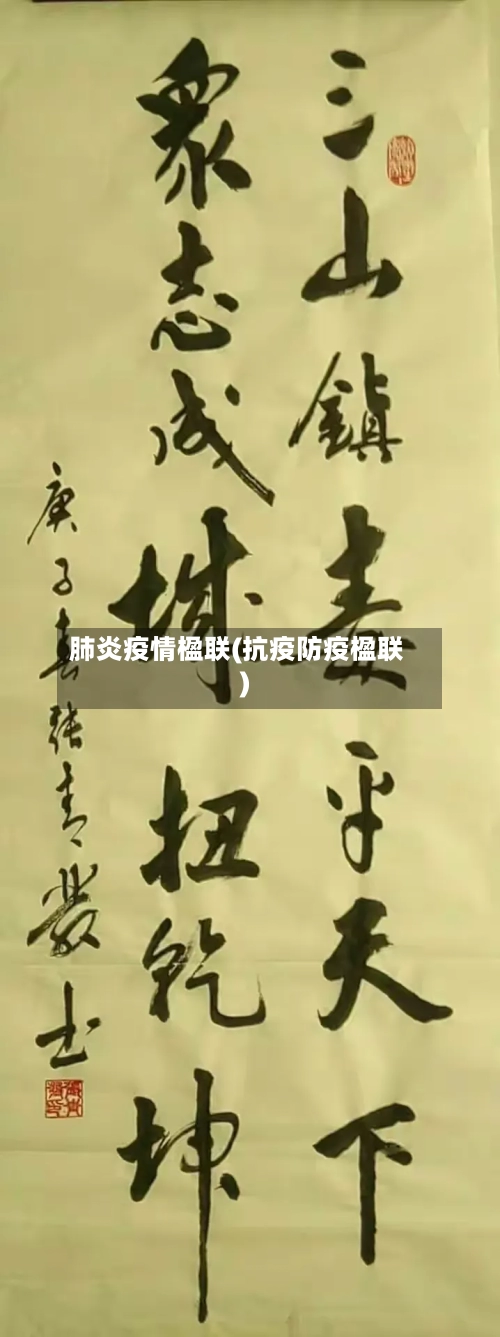 三山鎮毒平天下
眾志成城扭乾坤
庚子春張青书
肺炎疫情楹联(抗疫防疫楹联
)